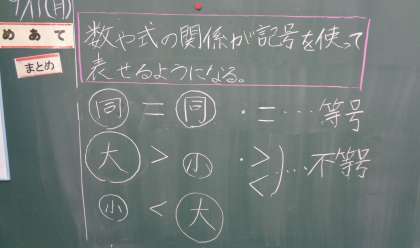 9/11(月)
めあて
まとめ
数や式の関係が記号を使って
表せるようになる。
同 = 同 ・=…等号
大 > 小 ・> <)…不等号
小 < 大